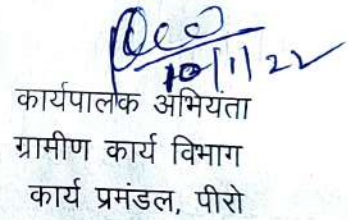 10/1/22
कार्यपालक अभियता
ग्रामीण कार्य विभाग
कार्य प्रमंडल, पीरो